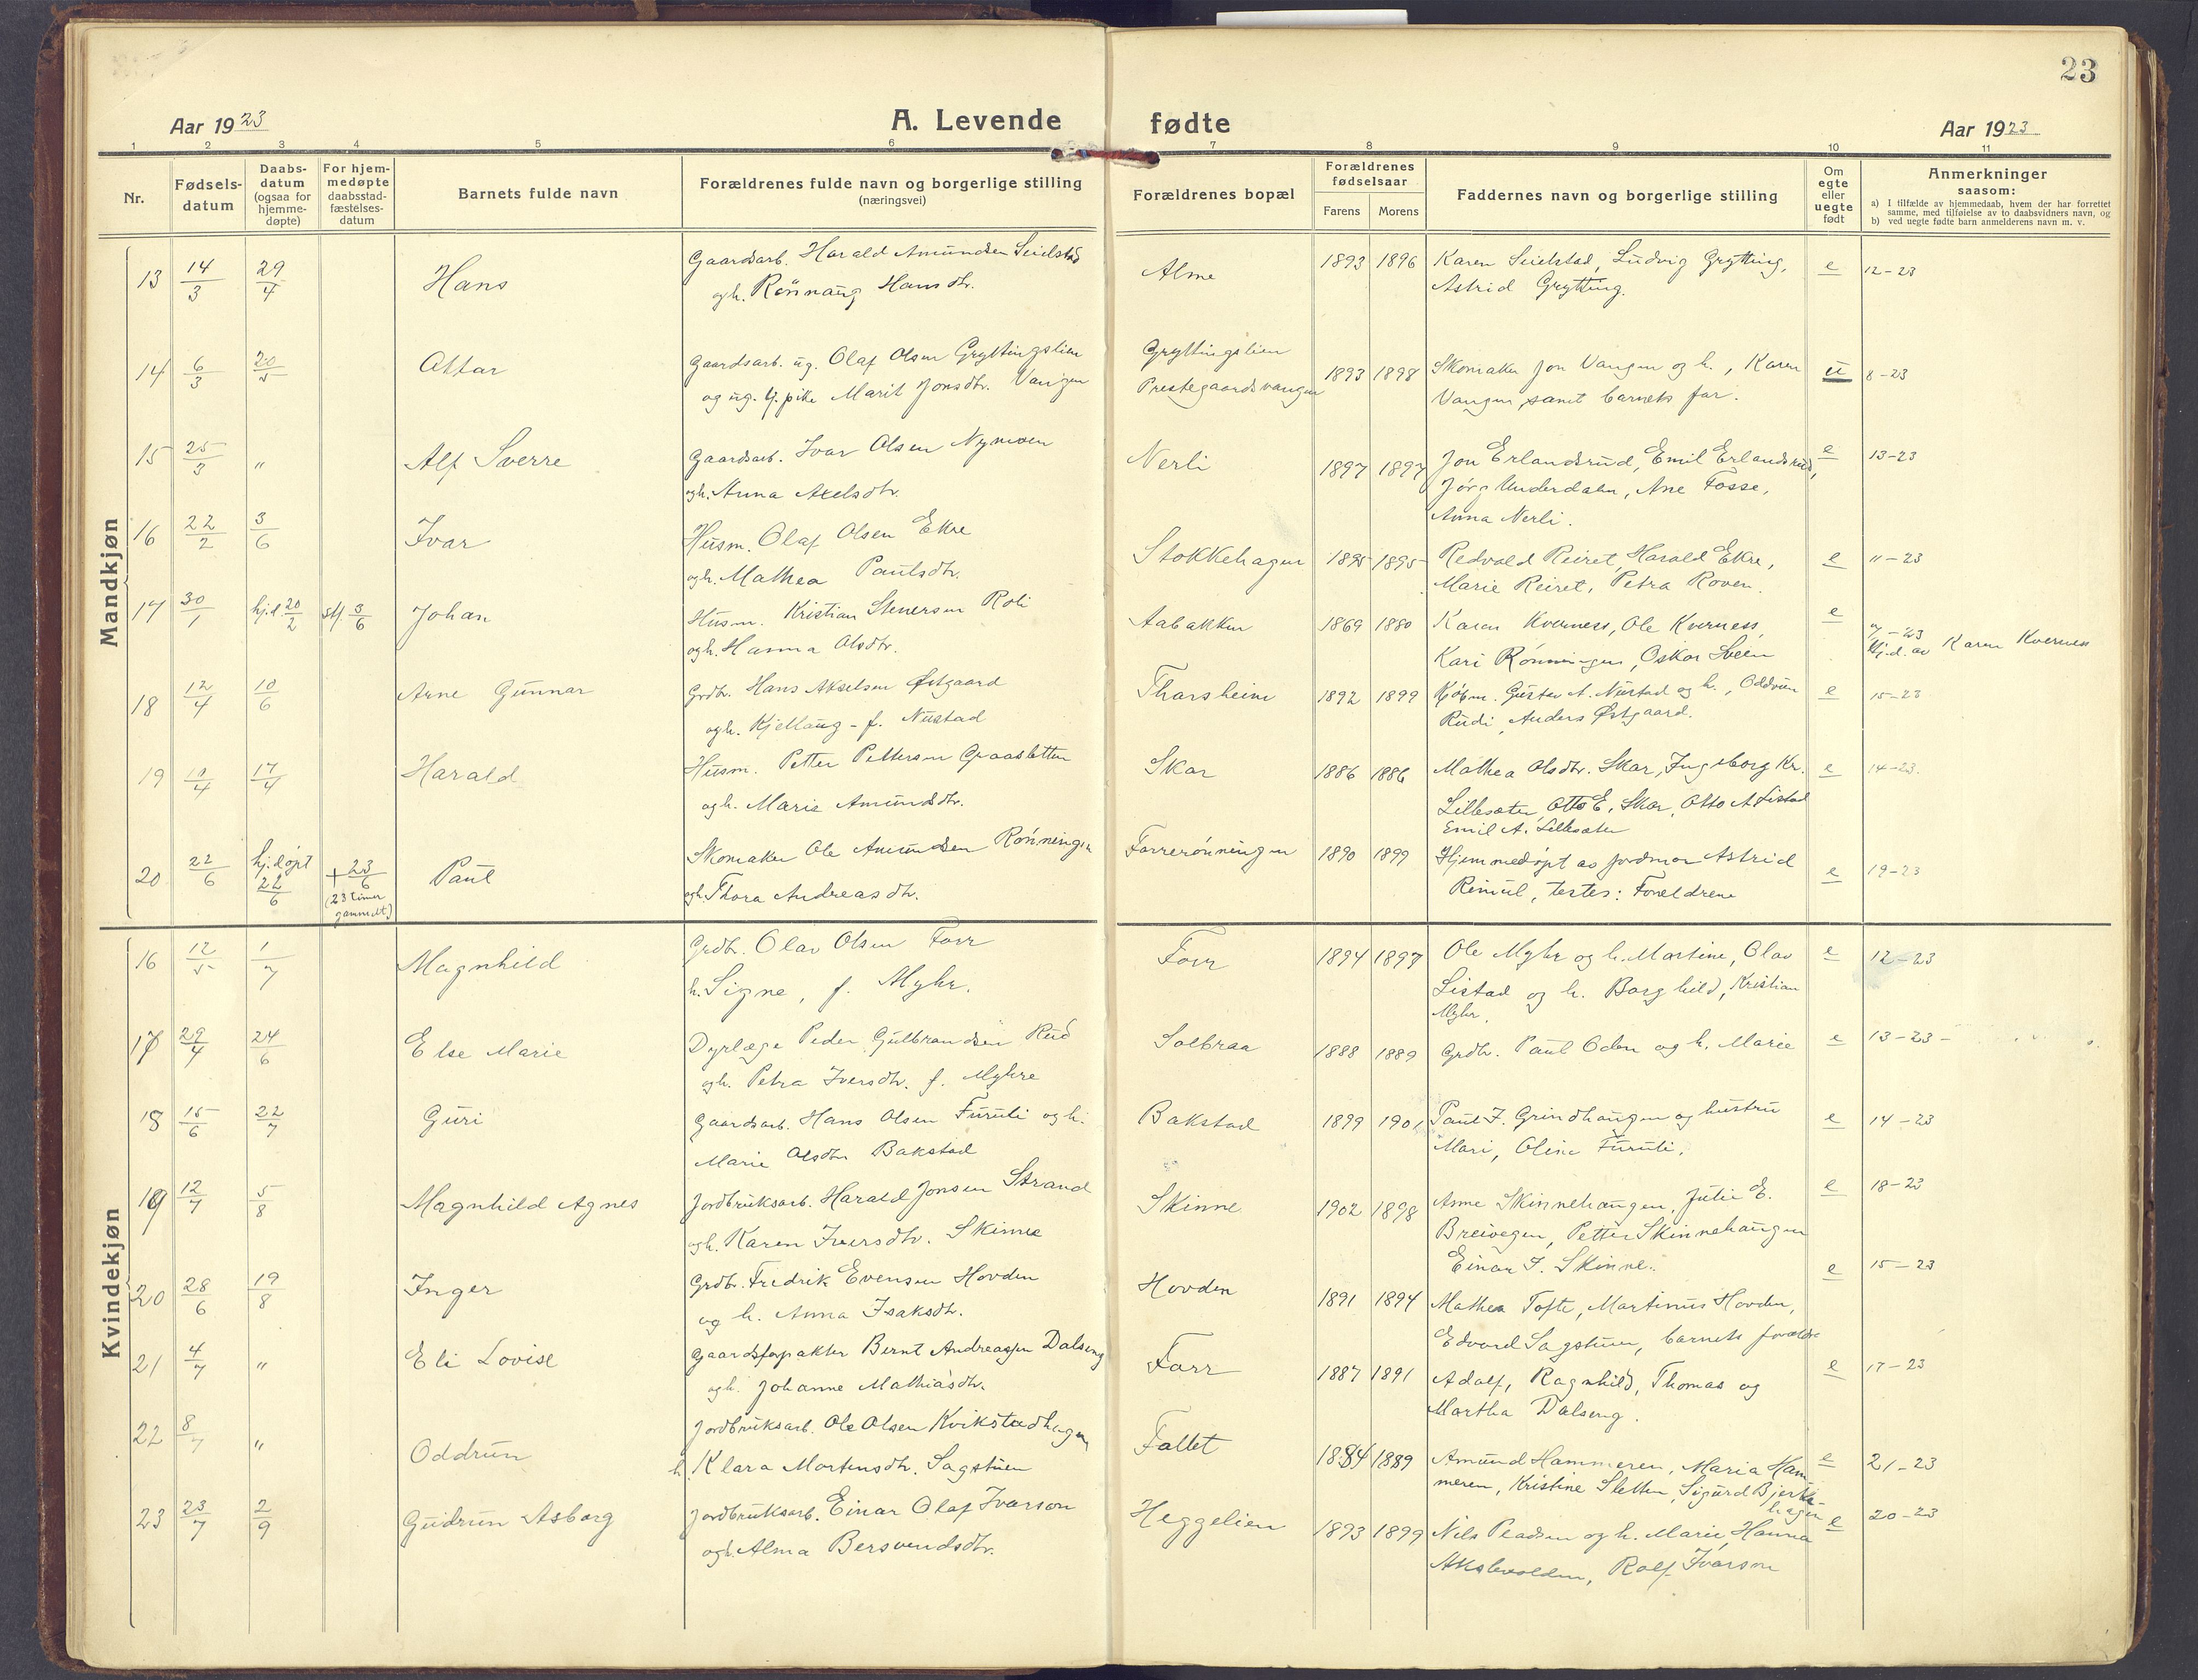 23
Aar 1923
A. Levende fødte
Aar 1923
1 2 3 4 5 6 7 8 9 10 11
Nr.
Fødsels-
datum
Daabs-
datum
(ogsaa for
hjemme-
døpte)
For hjem-
medøpte
daabsstad-
fæstelses-
datum
Barnets fulde navn
Forældrenes fulde navn og borgerlige stilling
(næringsvei)
Forældrenes bopæl
Forældrenes
fødselsaar
Farens Morens
Faddernes navn og borgerlige stilling
Om
egte
eller
uegte
født
Anmerkninger
saasom:
a) I tilfælde av hjemmedaab, hvem der har forrettet
samme, med tilføielse av to daabsvidners navn, og
b) ved uegte fødte barn anmelderens navn m. v.
Mandkjøn
13 14/3 29/4 Hans Gaardsarb. Harald Amundsen Seielstad Alme 1893 1896 Karen Seielstad, Ludvig Grytting, e 12-23
ogh. Rönnaug Hansdtr. Astrid Grytting.
14 6/3 20/5 Ottar Gaardsarb. ug. Olaf Olsen Gryttingslien Gryttingslien 1893 1898 Skomaker Jon Vangen og h., Karen u 8-23
og ug. g. pike Marit Jonsdtr. Vangen Prestegaardsvangen Vangen, samt barnets far.
15 25/3 " Alf Sverre Gaardsarb. Ivar Olsen Nymoen Nerli 1897 1897 Jon Erlandsrud, Emil Erlandsrud, e 13-23
ogh. Anna Axelsdtr. Jörg Underdalen, Ane Fosse,
Anna Nerli.
16 22/2 3/6 Ivar Husm. Olaf Olsen Ekre Stokkehagen 1895 1895 Redvald Reiret, Harald Ekre, e 11-23
ogh. Mathea Paulsdtr. Marie Reiret, Petra Roven.
17 30/1 hj.d 20/2 stf. 3/6 Johan Husm. Kristian Stenersen Roli Aabakken 1869 1880 Karen Kverness, Ole Kverness, e 7-23
ogh. Hanna Olsdtr. Kari Rönningen, Oskar Sveen Hj.d. av Karen Kverness
18 12/4 10/6 Arne Gunnar Grdbr. Hans Akselsen Østgaard Tharsheim 1892 1899 Kjøbm. Gustav A. Nustad og h., Oddrun e 15-23
ogh. Kjellaug - f. Nustad Rudi, Anders Østgaard.
19 10/4 17/4 Harald Husm. Petter Pettersen Graasletten Skar 1886 1886 Mathea Olsdtr. Skar, Ingeborg Kr. e 14-23.
ogh. Marie Amundsdtr. Lillesæter, Otto E. Skar, Otto A Listad
Emil A. Lillesæter
20 22/6 hj.døpt 22/6 + 23/6 (23 timer gammelt) Paul Skomaker Ole Amundsen Rönningen Forrerönningen 1890 1899 Hjemmedøpt av jordmor Astrid e 19-23
ogh. Thora Andreasdtr. Rimul, testes: Foreldrene
Kvindekjøn
16 12/5 1/7 Magnhild Grdbr. Olav Olsen Forr Forr 1894 1897 Ole Myhr og h. Martine, Olav e 12-23
h. Signe, f. Myhr. Listad og h. Borghild, Kristian
Myhr.
17 29/4 24/6 Else Marie Dyrlæge Peder Gulbrandsen Rud Solbraa 1888 1889 Grdbr. Paul Oden og h. Marie e 13-23-
ogh. Petra Iversdtr. f. Myhre
18 15/6 22/7 Guri Gaardsarb. Hans Olsen Furuli og h. Bakstad 1899 1901 Paul J. Grindhaugen og hustru e 14-23
Marie Olsdtr Bakstad Mari, Oline Furuli.
19 12/7 5/8 Magnhild Agnes Jordbruksarb. Harald Jonsen Strand Skinne 1902 1898 Anne Skinnehaugen, Julie E. e 18-23
ogh. Karen Iversdtr. Skinne Breivegen, Petter Skinnehaugen
Einar I. Skinne.
20 28/6 19/8 Inger Grdbr. Fredrik Evensen Hovden Hovden 1891 1894 Mathea Tofte, Martinus Hovden, e 15-23
og h. Anna Isaksdtr. Edvard Sagstuen, barnets forældre
21 4/7 " Eli Lovise Gaardsforpakter Bernt Andreassen Dalseng Forr 1887 1891 Adolf, Ragnhild, Thomas og e 17-23
ogh. Johanne Mathiasdtr. Martha Dalseng.
22 8/7 " Oddrun Jordbruksarb. Ole Olsen Kvikstadhagen Fallet 1884 1889 Amund Hammeren, Maria Ham- e 21-23
h. Klara Mortensdtr. Sagstuen meren, Kristine Sletten, Sigurd Bjerke-
hagen
23 23/7 2/9 Gudrun Asborg Jordbruksarb. Einar Olaf Ivarson Heggelien 1893 1899 Nils Pladsen og h. Marie, Hanna e 20-23
ogh. Alma Bersvendsdtr. Akslevolden, Rolf Ivarson